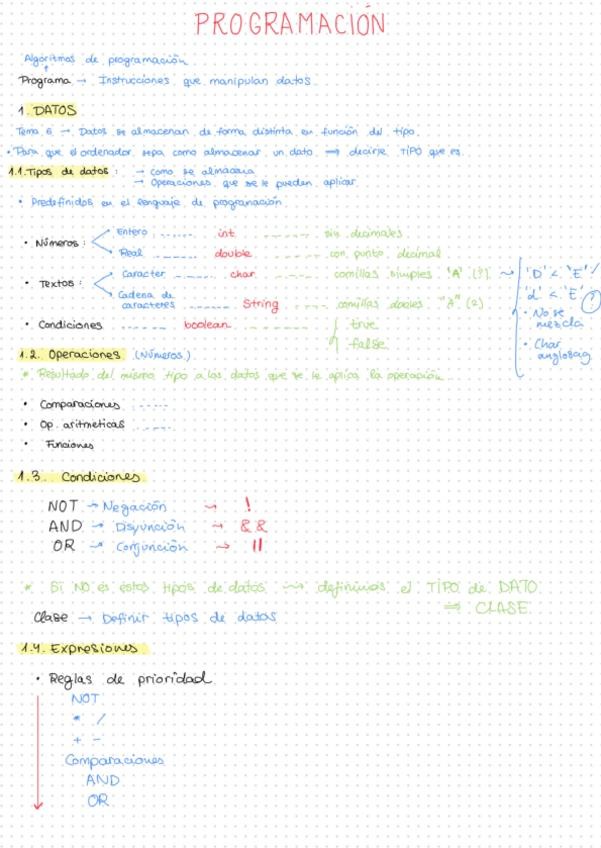 PROGRAMACIÓN
Algoritmos de programación
Programa → Instrucciones que manipulan datos.
1. DATOS
Tema 6 → Datos se almacenan de forma distinta en función del tipo.
• Para que el ordenador sepa como almacenar un dato ⟹ decirle TIPO que es
1.1. Tipos de datos: → Cómo se almacena
→ Operaciones que se le pueden aplicar
• Predefinidos en el lenguaje de programación
• Números: Entero ...... int ------ sin decimales
Real ...... double ------ con punto decimal
• Textos: Caracter ---- char ------ comillas simples 'A' (?)
Cadena de caracteres ...... String ---- comillas dobles "A" (2)
'D' < 'E' /
'd' < 'E' ?
• No se mezcla
• Char
• Condiciones ...... boolean ...... true
false
1.2. Operaciones (Números)
* Resultado del mismo tipo a los datos que se le aplica la operación
• Comparaciones ......
• Op. aritmeticas .....
• Funciones
1.3. Condiciones
NOT → Negación → !
AND → Disyunción → &&
OR → Conjunción → ||
* Si NO es estos tipos de datos → definimos el TIPO de DATO
⟹ CLASE.
Clase → Definir tipos de datos
1.4. Expresiones
• Reglas de prioridad
NOT
* /
+ -
Comparaciones
AND
OR